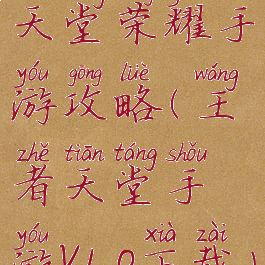 天堂荣耀手
yóu gōng lüè wáng
游攻略(王
zhě tiān táng shǒu
者天堂手
yóu xià zài
游V1.0下载)